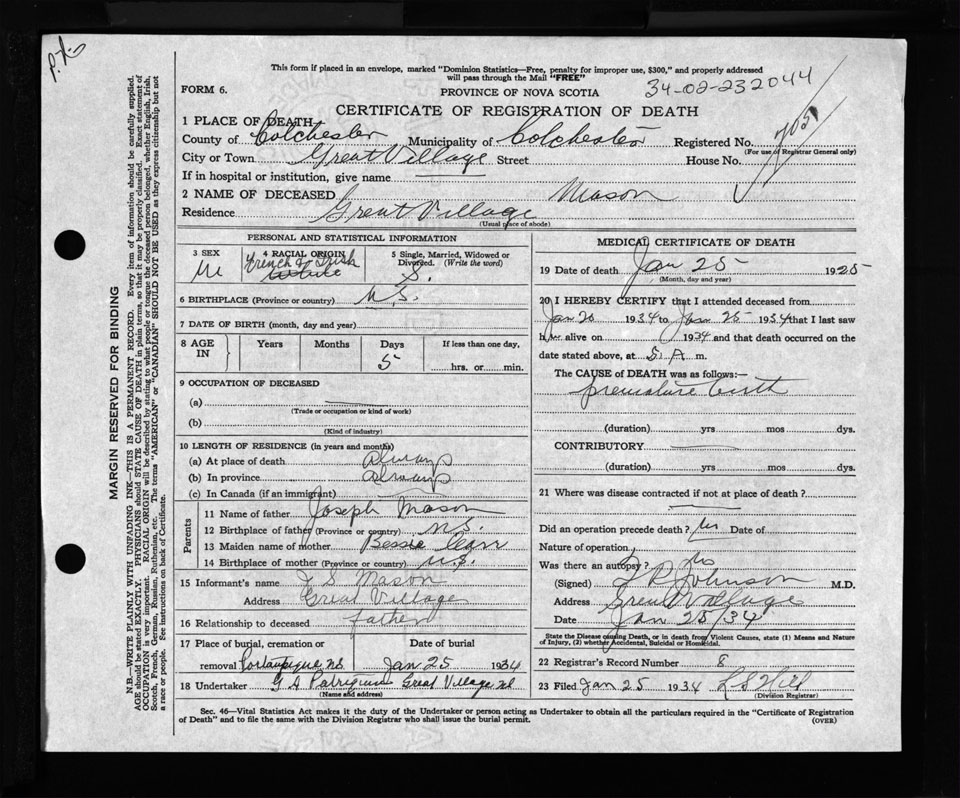 This form if placed in an envelope, marked "Dominion Statistics—Free, penalty for improper use, $300," and properly addressed
will pass through the Mail "FREE"
FORM 6.
PROVINCE OF NOVA SCOTIA
34-02-232044
CERTIFICATE OF REGISTRATION OF DEATH
1 PLACE OF DEATH
County of Colchester Municipality of Colchester Registered No. 705
(For use of Registrar General only)
City or Town Great Village Street House No.
If in hospital or institution, give name
2 NAME OF DECEASED Mason
Residence Great Village
(Usual place of abode)
PERSONAL AND STATISTICAL INFORMATION
3 SEX M
4 RACIAL ORIGIN French & Irish
5 Single, Married, Widowed or Divorced. (Write the word) S.
6 BIRTHPLACE (Province or country) N.S.
7 DATE OF BIRTH (month, day and year)
8 AGE IN Years Months Days 5 If less than one day, hrs. or min.
9 OCCUPATION OF DECEASED
(a)
(Trade or occupation or kind of work)
(b)
(Kind of industry)
10 LENGTH OF RESIDENCE (in years and months)
(a) At place of death always
(b) In province always
(c) In Canada (if an immigrant)
Parents
11 Name of father Joseph Mason
12 Birthplace of father (Province or country) N.S.
13 Maiden name of mother Bessie
14 Birthplace of mother (Province or country) N.S.
15 Informant's name J S Mason
Address Great Village
16 Relationship to deceased father
17 Place of burial, cremation or removal Portaupique N.S. Date of burial Jan 25 1934
18 Undertaker G A Great Village NS
(Name and address)
MEDICAL CERTIFICATE OF DEATH
19 Date of death Jan 25 1925
(Month, day and year)
20 I HEREBY CERTIFY that I attended deceased from
Jan 20 1934 to Jan 25 1934 that I last saw
h alive on 1934 and that death occurred on the
date stated above, at 5 A m.
The CAUSE of DEATH was as follows:—
premature birth
(duration) yrs mos dys.
CONTRIBUTORY
(duration) yrs mos dys.
21 Where was disease contracted if not at place of death?
Did an operation precede death? No Date of
Nature of operation
Was there an autopsy? No
(Signed) Johnson M.D.
Address Great Village
Date Jan 25/34
State the Disease causing Death, or in death from Violent Causes, state (1) Means and Nature
of Injury, (2) whether Accidental, Suicidal or Homicidal.
22 Registrar's Record Number 8
23 Filed Jan 25 1934 L S Hill
(Division Registrar)
Sec. 46—Vital Statistics Act makes it the duty of the Undertaker or person acting as Undertaker to obtain all the particulars required in the "Certificate of Registration
of Death" and to file the same with the Division Registrar who shall issue the burial permit.
(OVER)
MARGIN RESERVED FOR BINDING
N.B.—WRITE PLAINLY WITH UNFADING INK—THIS IS A PERMANENT RECORD. Every item of information should be carefully supplied.
AGE should be stated EXACTLY. PHYSICIANS should STATE CAUSE OF DEATH in plain terms, so that it may be properly classified. Exact statement of
OCCUPATION is very important. RACIAL ORIGIN will be described by stating to what people or tongue the deceased person belonged, whether English, Irish,
Scotch, French, German, Russian, Ruthenian, etc. The terms "AMERICAN" or "CANADIAN" SHOULD NOT BE USED as they express citizenship but not
a race or people. See instructions on back of Certificate.